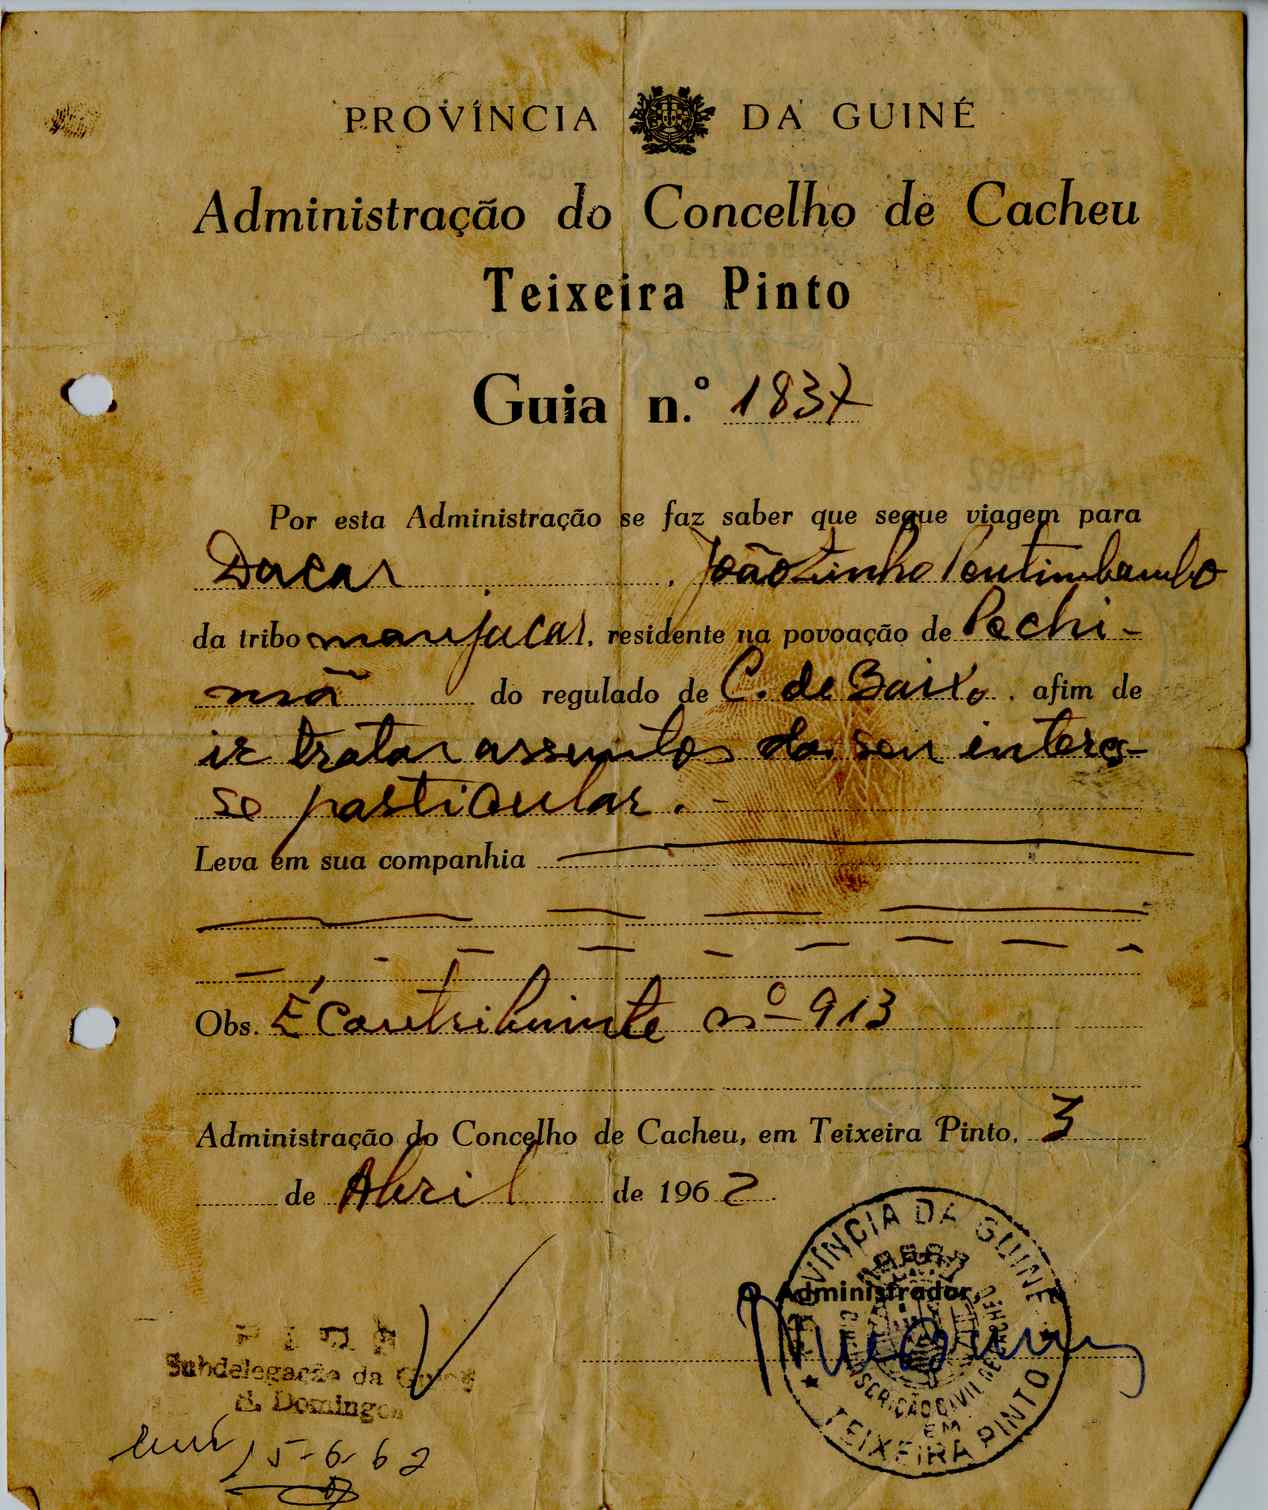 PROVÍNCIA DA GUINÉ
Administração do Concelho de Cacheu
Teixeira Pinto
Guia n.º 1837
Por esta Administração se faz saber que segue viagem para
Dacar, Joãozinho Pentimbambo
da tribo manjacar, residente na povoação de Pechi-
mã do regulado de C. de Baixo, afim de
ir tratar assuntos do seu interes-
se particular. -
Leva em sua companhia
Obs. É Contribuinte nº 913
Administração do Concelho de Cacheu, em Teixeira Pinto, 3
de Abril de 1962
O Administrador,
PROVÍNCIA DA GUINÉ
CIRCUNSCRIÇÃO CIVIL DE CACHEU
EM
TEIXEIRA PINTO
PIDE
Subdelegação da Guiné
S. Domingos
15-6-62